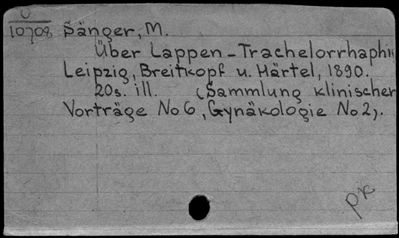 O
10708 Sänger, M.
Über Lappen-Trachelorrhaphi
Leipzig, Breitkopf u. Härtel, 1890.
20s. ill. (Sammlung klinischer
Vorträge No 6, Gynäkologie No 2).
pk